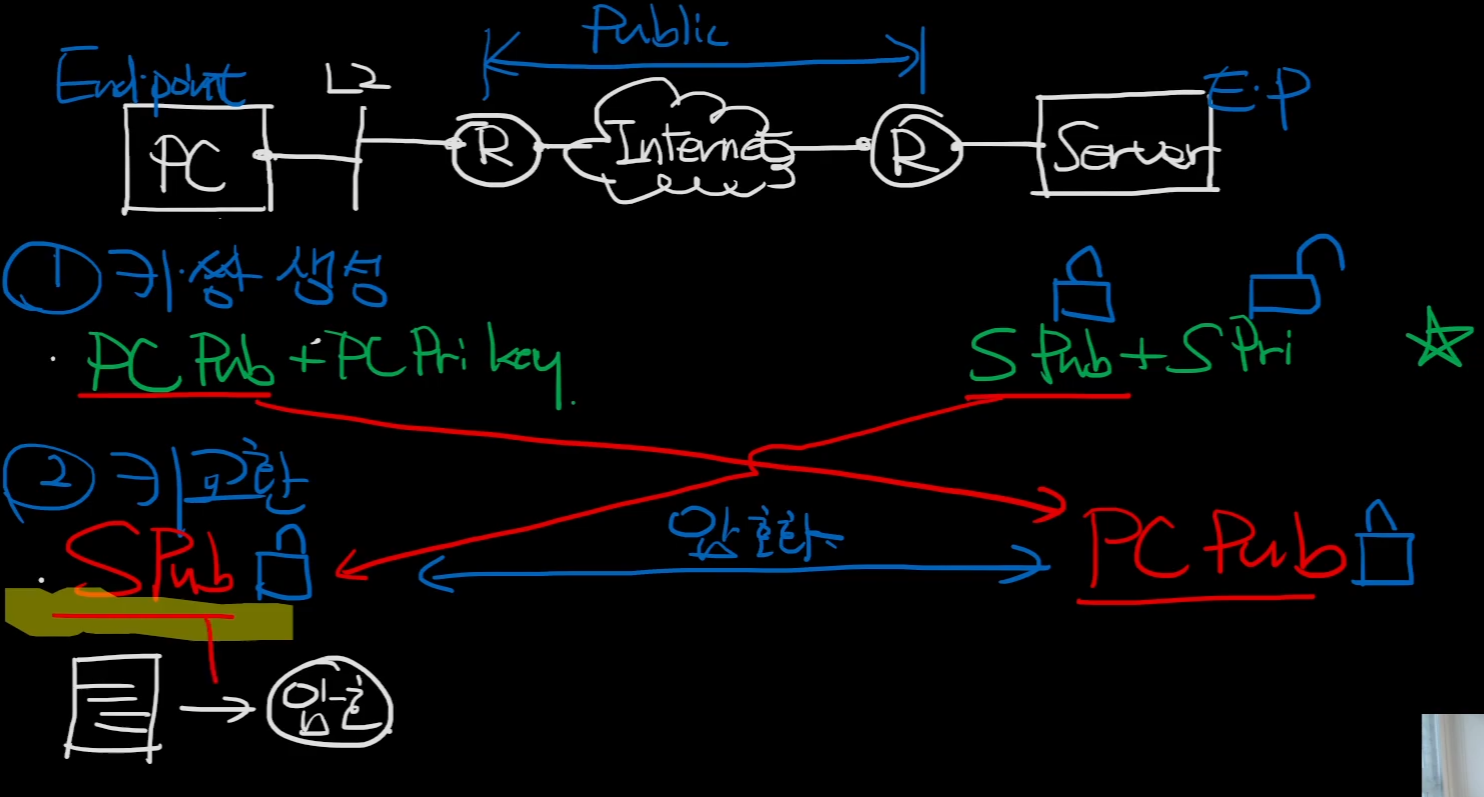 Public
Endpoint L2 E.P
PC R Internet R Server
① 키쌍 생성
PC Pub + PC Pri key. S Pub + S Pri
② 키교환
S Pub 암호화 PC Pub
암호